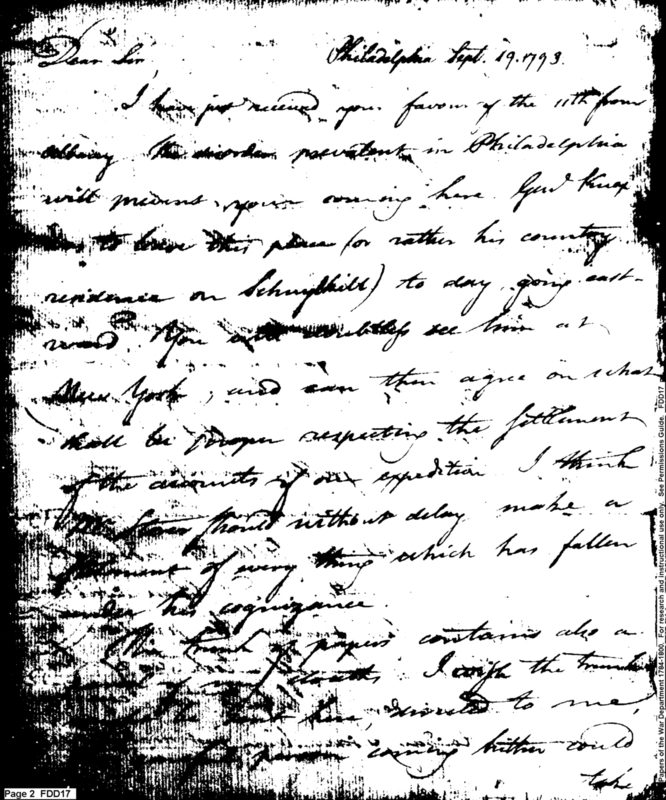 Dear Sir, Philadelphia Sept. 19. 1793.
I have just received your favour of the 11th from
Albany. The disorder prevalent in Philadelphia
will prevent your coming here. Genl Knox
is to leave this place (or rather his country
residence on Schuylkill) to day, going east-
ward. You will doubtless see him at
New York; and can then agree on what
shall be proper respecting the settlement
of the accounts of our expedition. I think
should without delay make a
statement of every thing which has fallen
under his cognizance.
The trunk of papers contains also a
of my I wish the trunk
sent here, directed to me,
person coming hither could
take
Page 2 FDD17
Papers of the War Department 1784-1800. For research and instructional use only. See Permissions Guide. FDD17